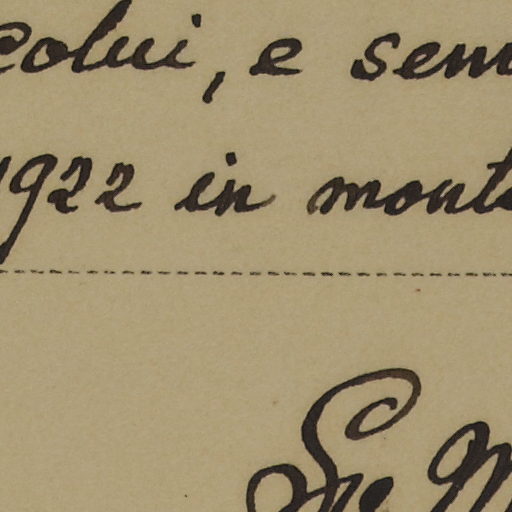 colui, e sem
1922 in monta
Le M